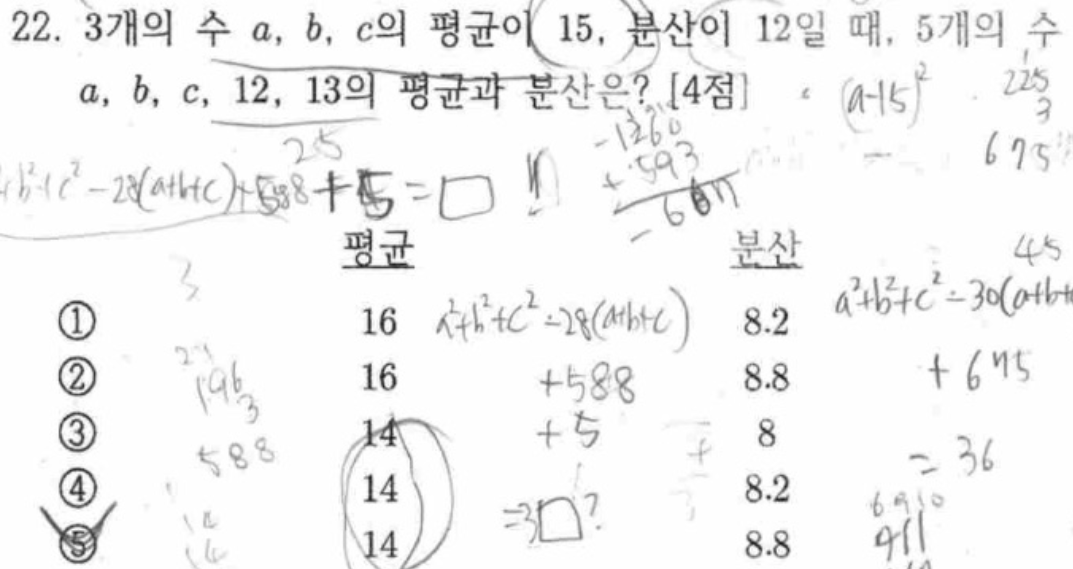 22. 3개의 수 a, b, c의 평균이 15, 분산이 12일 때, 5개의 수
a, b, c, 12, 13의 평균과 분산은? [4점]
(a-15)²
225
3
675
-1260
+593
25
+b²+c²-28(a+b+c)+588+5=□
평균 분산
3
45
① 16 8.2
a²+b²+c²-28(a+b+c)
a²+b²+c²-30(a+b+
② 16 8.8
+588
+675
196
3
③ 14 8
+5
588
=36
④ 14 8.2
=3□?
⑤ 14 8.8